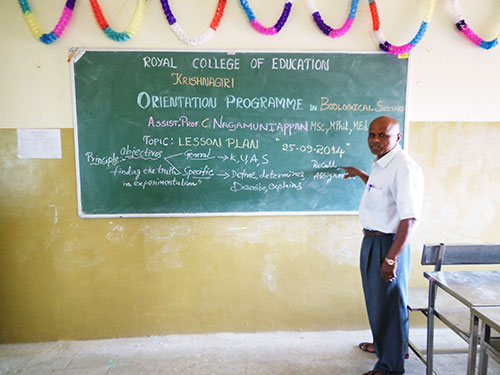 ROYAL COLLEGE OF EDUCATION
KRISHNAGIRI
ORIENTATION PROGRAMME IN BIOLOGICAL SCIENCE
ASSIST. PROF. C. NAGAMUNIAPPAN MSc, M.Phil, M.Ed,
TOPIC: LESSON PLAN "25-09-2014"
Principle: objectives General K, U, A, S Recall
finding the truth Specific Define, determines, Assignment
in experimentation" Describe, explains